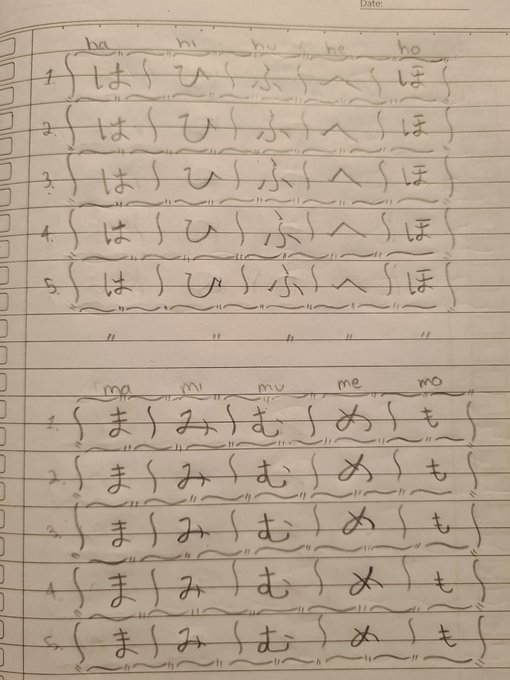 Date:
ha hi hu he ho
1. は ひ ふ へ ほ
2. は ひ ふ へ ほ
3. は ひ ふ へ ほ
4. は ひ ふ へ ほ
5. は ひ ふ へ ほ
" " " " "
ma mi mu me mo
1. ま み む め も
2. ま み む め も
3. ま み む め も
4. ま み む め も
5. ま み む め も